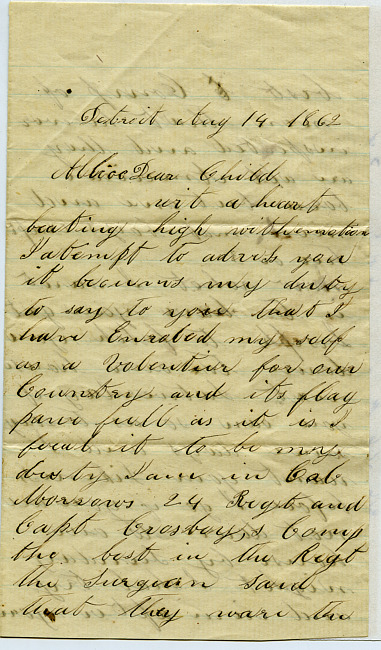 Detroit Aug 14 1862
Dear Child
wit a heart
beating high with emotion
I atempt to adres you
it becums my duty
to say to you that I
have Enroled my self
as a Volentier for our
Country and its flag
pane full as it is I
feeal it to be my
duty I am in Col
Morrows 24 Regt and
Capt Crosbey,s Comp
the best in the Regt
the Surgeon said
that they ware the